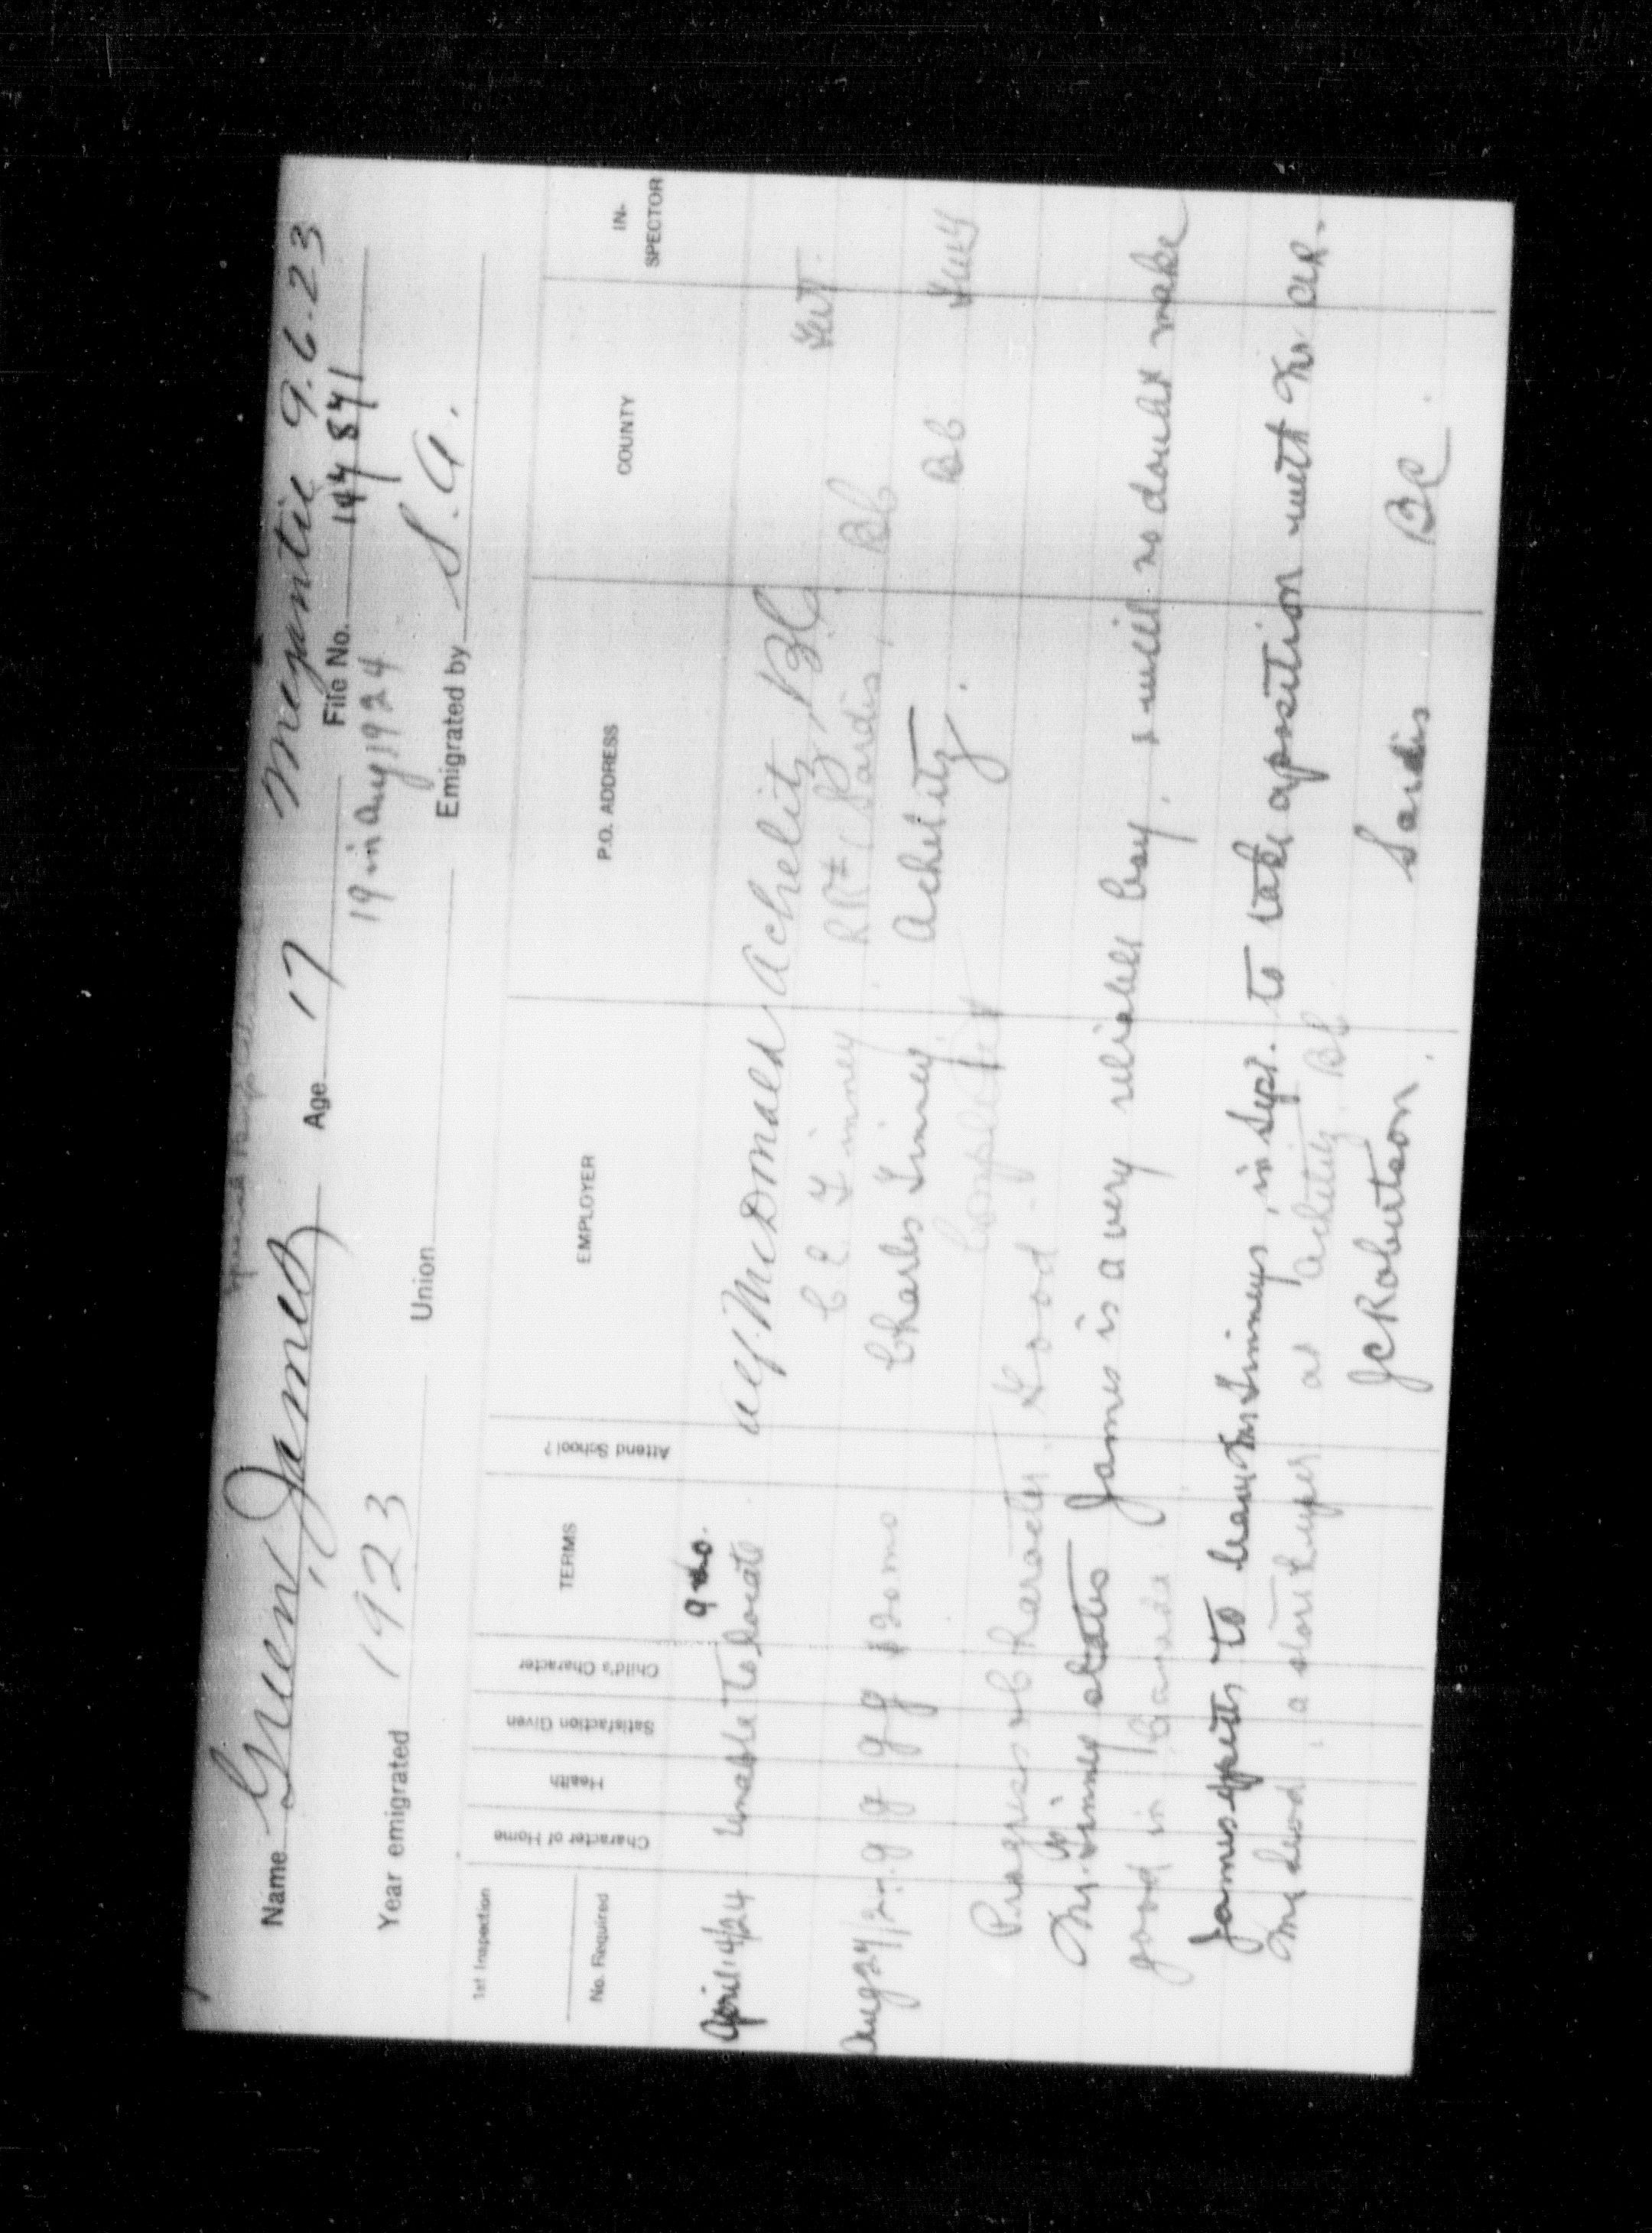 Name Green, James Age 17 Megantic 9.6.23
File No. 147 841
19 in Aug 1924
Year emigrated 1923 Union Emigrated by S.A.
1st Inspection
No. Required
Character of Home
Health
Satisfaction Given
Child's Character
TERMS
Attend School?
EMPLOYER
P.O. ADDRESS
COUNTY
IN-SPECTOR
April 14/24 Unable to locate Alf. McDonald Achelitz, BC
C E Tinney RR#1 Sardis, BC
Aug 27/24 g g g g $20 mo Charles Tinney Achelitz BC
Completed
Progress & Character Good.
Mr. Tinney states James is a very reliable boy, & will no doubt make
good in Canada
James expects to leave Mr Tinneys, in Sept. to take a position with Mr Alex.
McLeod, a storekeeper at Achelitz BC
J C Robertson. Sardis BC.